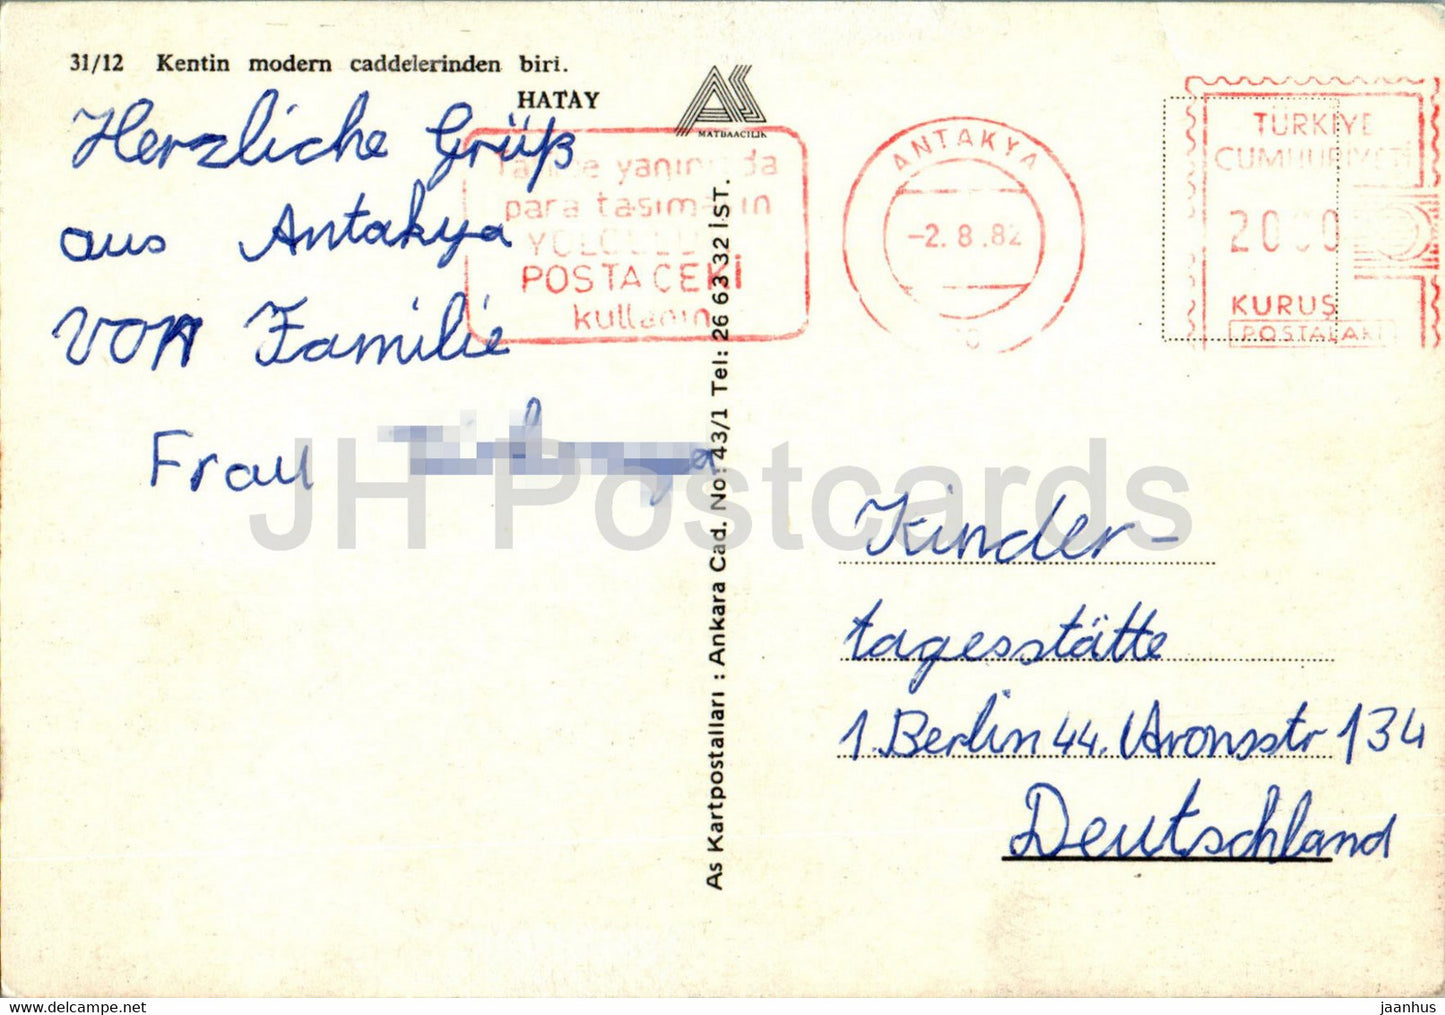 31/12 Kentin modern caddelerinden biri.
HATAY
MATBAACILIK
Herzliche Grüß
aus Antakya
von Familie
Frau
yanınızda
para taşımayın
POSTA ÇEKİ
kullanın
ANTAKYA
-2.8.82
TÜRKİYE
CUMHURİYETİ
2000
KURUŞ
POSTALARI
As Kartpostalları : Ankara Cad. No: 43/1 Tel: 26 63 32 İST.
JH Postcards
Kinder-
tagesstätte
1. Berlin 44. Aronsstr 134
Deutschland
https://www.delcampe.net
jaanhus